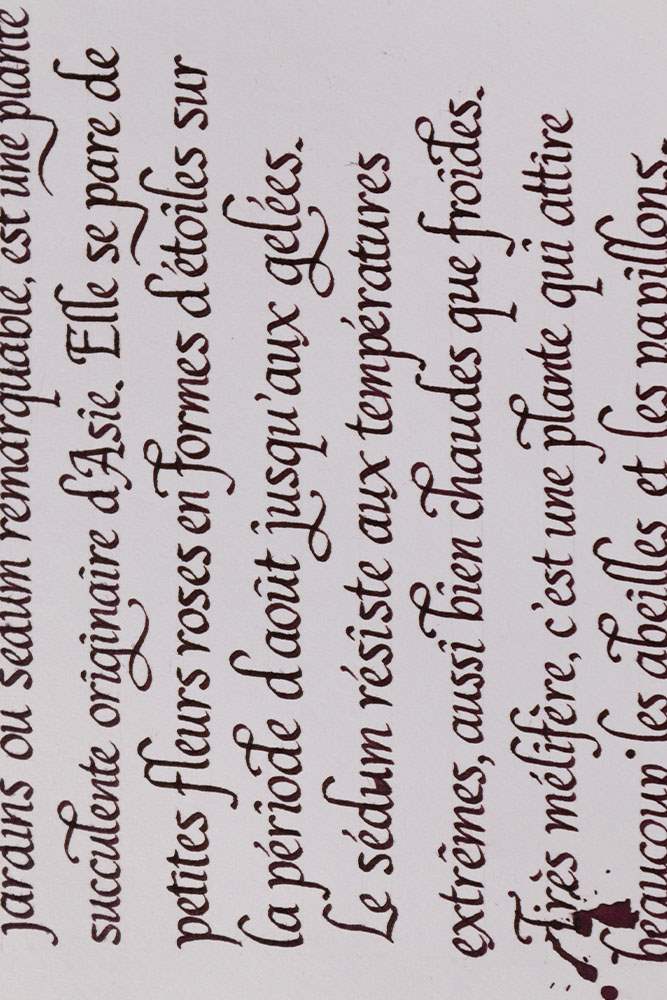 jardins ou sédum remarquable, est une plante
succulente originaire d'Asie. Elle se pare de
petites fleurs roses en formes d'étoiles sur
la période d'août jusqu'aux gelées.
Le sédum résiste aux températures
extrêmes, aussi bien chaudes que froides.
Très mélifère, c'est une plante qui attire
beaucoup les abeilles et les papillons.